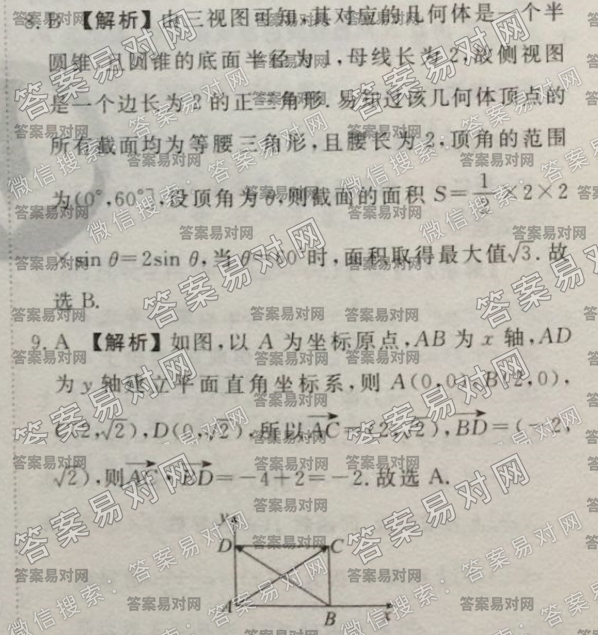 8. B 【解析】由三视图可知,其对应的几何体是一个半
圆锥,且圆锥的底面半径为1,母线长为2,故侧视图
是一个边长为2的正三角形.易知过该几何体顶点的
所有截面均为等腰三角形,且腰长为2,顶角的范围
为(0°,60°],设顶角为θ,则截面的面积 S=1/2×2×2
×sin θ=2sin θ,当θ=60°时,面积取得最大值√3.故
选 B.
9. A 【解析】如图,以 A 为坐标原点,AB 为 x 轴,AD
为 y 轴建立平面直角坐标系,则 A(0,0),B(2,0),
C(2,√2),D(0,√2),所以AC=(2,√2),BD=(-2,
√2),则AC·BD=-4+2=-2.故选 A.
y
D C
A B x
答案易对网
微信搜索:答案易对网